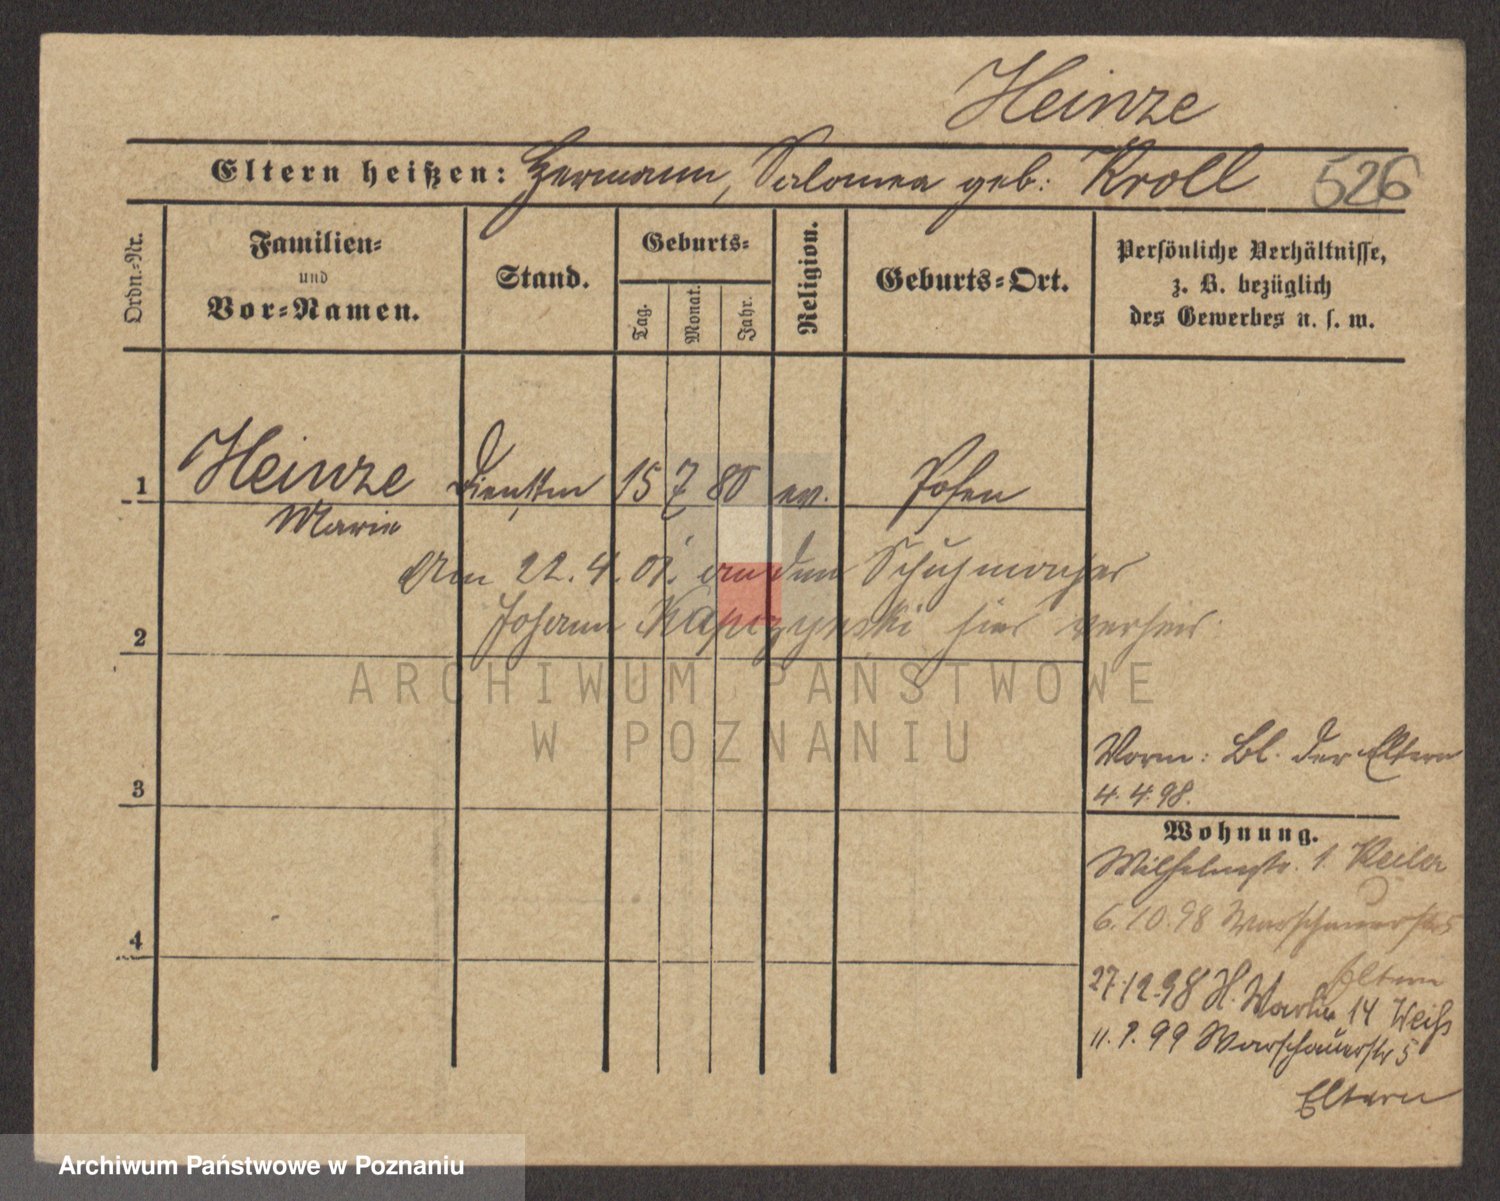 Heinze
Eltern heißen: Hermann, Salomea geb: Kroll 526
Ordn.-Nr.
Familien-
und
Vor-Namen.
Stand.
Geburts-
Tag.
Monat.
Jahr.
Religion.
Geburts-Ort.
Persönliche Verhältnisse,
z. B. bezüglich
des Gewerbes u. s. w.
1 Heinze Dienstm 15 7 80 ev. Posen
Marie
Am 22.4.01. an den Schuhmacher
Johann Kapczynski hier verheir.
2
ARCHIWUM PAŃSTWOWE
W POZNANIU
Vorm: Bl. der Eltern
4.4.98.
3
Wohnung.
Wilhelmstr. 1. Keiler
6.10.98 Warschauerstr 5
Eltern
4
27.12.98 H. 14 Weiß
11. 99 Warschauerstr 5
Eltern
Archiwum Państwowe w Poznaniu